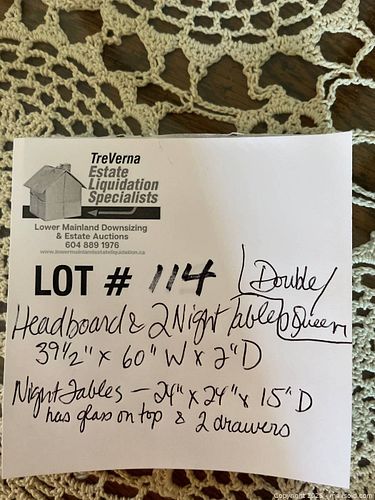 TreVerna
Estate
Liquidation
Specialists
Lower Mainland Downsizing
& Estate Auctions
604 889 1976
www.lowermainlandestateliquidation.ca
LOT # 114
Double/
Headboard & 2 Night Tables Queen
39 1/2" x 60" W x 2" D
Night Tables — 24" x 24" x 15" D
has glass on top & 2 drawers
Copyright 2025 - maxsold.com